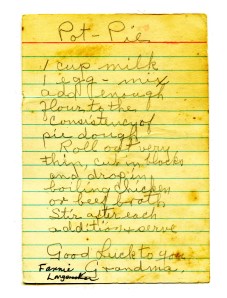 Pot-Pie
1 cup milk
1 egg - mix
add enough
flour to the
consistency of
pie dough
Roll out very
thin, cut in blocks
and drop in
boiling chicken
or beef broth
Stir after each
addition & serve
Good Luck to you
Grandma,
Fannie